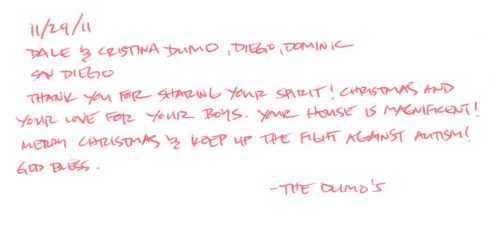 11/29/11
DALE & CRISTINA DUMO, DIEGO, DOMINIC
SAN DIEGO
THANK YOU FOR SHARING YOUR SPIRIT! CHRISTMAS AND
YOUR LOVE FOR YOUR BOYS. YOUR HOUSE IS MAGNIFICENT!
MERRY CHRISTMAS & KEEP UP THE FIGHT AGAINST AUTISM!
GOD BLESS.
-THE DUMO'S